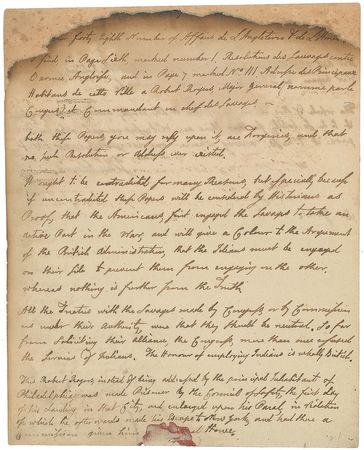 forty Eighth Number of Affairs de L'Angleterre & de L'Am
in Page sixth marked number 1, Resolutions des Sauvages contre
l'armee Angloise, and in Page 7 marked No III Adresse des Principaux
Habitans de cette Ville a Robert Rogers, Major General nommé par le
Congress et Commandant en chef des Sauvages.
both these Papers you may rely upon it, are Forgeries, and that
no such Resolution or Address ever existed.
It ought to be contradicted for many Reasons, but especially, because
if uncontradicted these Papers will be considered by Historians as
Proof, that the Americans, first engaged the Savages to take an
active Part in the War, and will give a Colour to the Argument
of the British Administration, that the Indians must be engaged
on their side to prevent them from engaging in the other,
whereas nothing is further from the Truth.
All the Treaties with the Savages made by Congress, or by Commission
ers under their Authority, were that they should be neutral. So far
from soliciting their alliance, the Congress, more than once refused
the Services of Indians. The Honour of employing Indians is wholly British.
This Robert Rogers, instead of being addressed by the principal Inhabitants of
Philadelphia, was made Prisoner by the Council of Safety, the first day
of his landing in that City, and enlarged upon his Parol, in Violation
of which he afterwards made his Escape to New York, and had there a
Commission given him Howe.